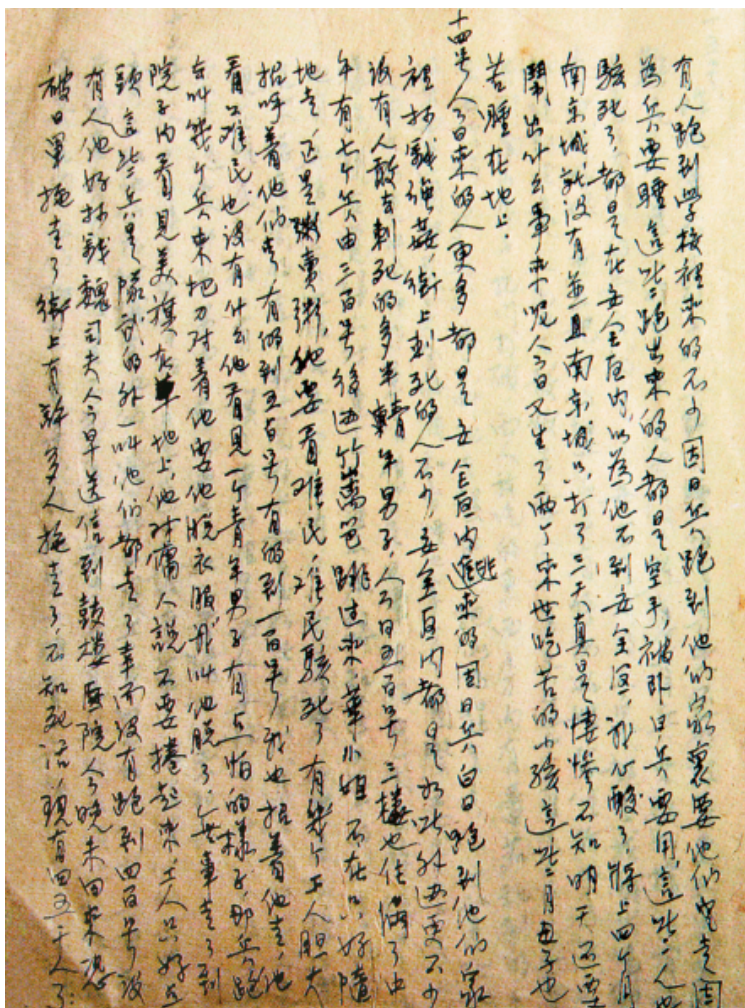 有人跑到学校裡来的不少因日兵跑到他们家裏要他们
为兵要睡這些跑出来的人都是空手被卧日兵要用這些人
駭死了都是在安全区内以为他不到安全区我心酸了將上四个月
南京城就没有並且南京城只打了三天真是悽惨不知明天还要
鬧出什么事来呢今日又生了两个来世吃苦的小孩這些月母子也
苦睡在地上
十四号人今日来的人更多都是安全区内逃進来的因日兵白日跑到他们家
裡抄錢強姦街上刺死的人不少安全区内都是如此外边更不少
没有人敢去刺死的多半青年男子人今日五百号三楼也住满了中
午有七个兵由三百号後边竹篱笆跳过来華小姐不在只好隨
地走还是粥賣粥他要看难民难民駭死了有幾个工人胆大
招呼着他们走有的到五百号有的到一百号我也招着他走他
看了难民也没有什么他看见一个青年男子有点怕的樣子那兵跑
去叫幾个兵来把刀对着他要他脱衣服就叫他脱了無事走了到
院子内看见美旗在草地上他对傭人説不要捲起来工人只好点
頭這些兵是隊武的外一叫他们都走了幸而没有跑到四百号没
有人他好抄錢魏司夫今早送信到鼓楼医院今晚未回来恐
被日軍拖走了街上有許多人拖走了不知死活現有四五千人了